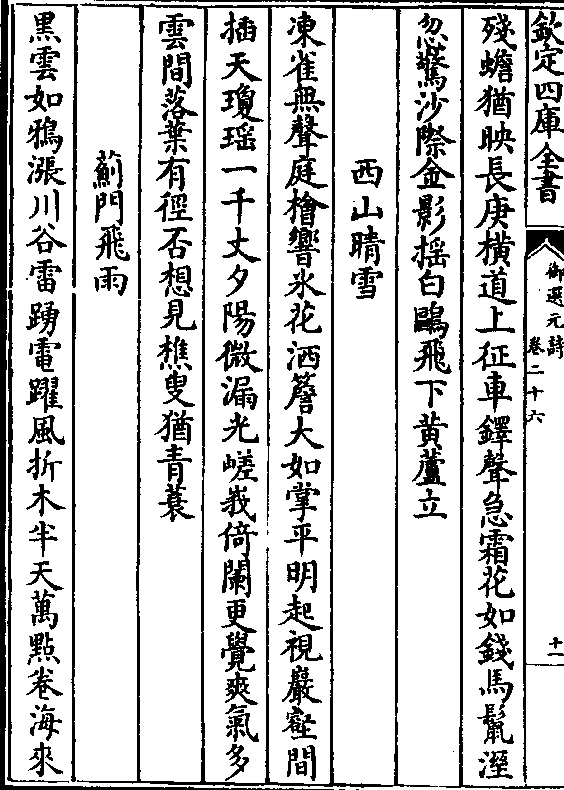 欽定四庫全書
御選元詩
卷二十六
十一
殘蟾猶映長庚橫道上征車鐸聲急霜花如錢馬鬛溼
忽驚沙際金影揺白鷗飛下黄蘆立
西山晴雪
凍雀無聲庭檜響氷花洒簷大如掌平明起視巖壑間
插天瓊瑶一千丈夕陽微漏光嵯峩倚闌更覺爽氣多
雲間落葉有徑否想見樵叟猶青蓑
薊門飛雨
黒雲如鴉漲川谷雷踴電躍風折木半天萬點卷海來